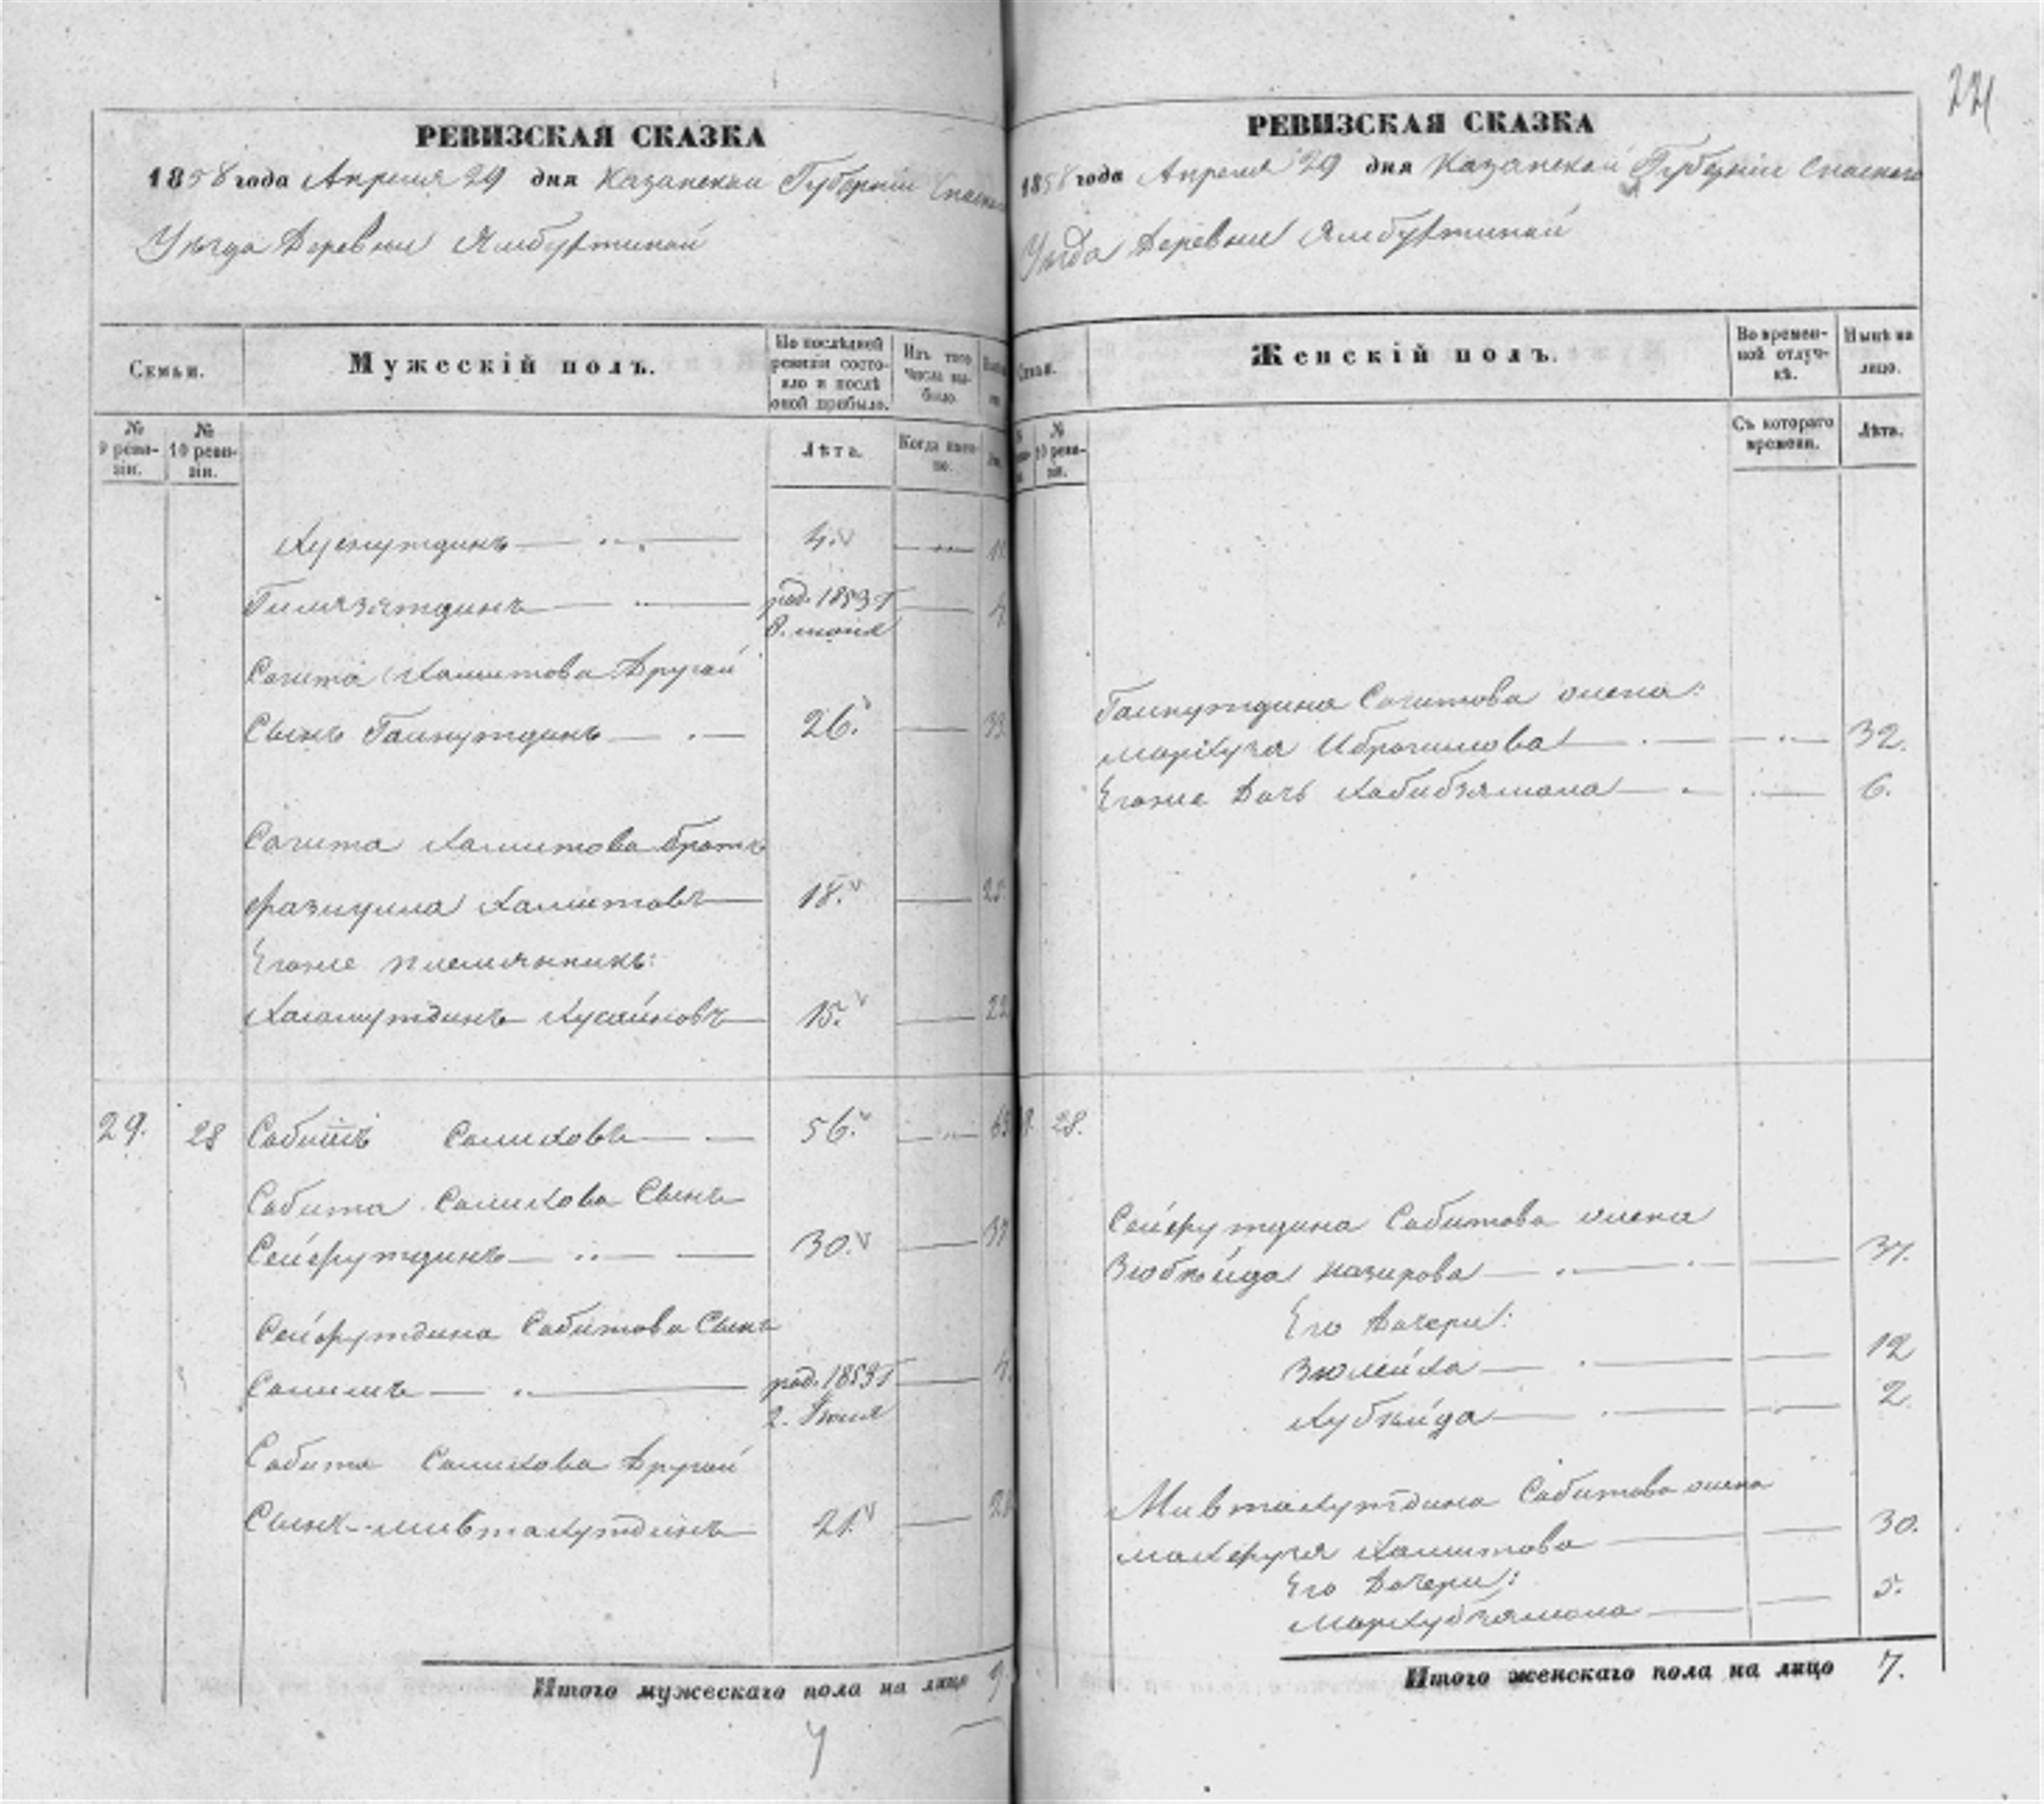 221
РЕВИЗСКАЯ СКАЗКА
1858 года Апреля 29 дня Казанской Губернiи Спаскаго
Уѣзда Деревни Ямбухтиной
Семьи.
Мужескiй полъ.
По послѣдней ревизiи состояло и послѣ оной прибыло.
Изъ того числа выбыло.
№ 9 ревизiи.
№ 10 ревизiи.
Лѣта.
Когда именно.
Хуснутдинъ 4.
Гилязятдинъ род. 1853 г
8. июня
Сагита Хамитова Другой
Сынъ Гайнутдинъ 26. 33
Сагита Хамитова братъ
Фазлулла Хамитовъ 18. 25
Егоже племянникъ:
Халамутдинъ Хусаиновъ 15. 22
29. 28 Сабитъ Салиховъ 56. 63
Сабита Салихова Сынъ
Сейфутдинъ 30.
Сейфутдина Сабитова Сынъ
Салимъ род. 1853 г
2. Июня
Сабита Салихова Другой
Сынъ Мивтахутдинъ 21. 28
Итого мужескаго пола на лицо 9
РЕВИЗСКАЯ СКАЗКА
1858 года Апреля 29 дня Казанской Губернiи Спаскаго
Уѣзда Деревни Ямбухтиной
Семьи.
Женскiй полъ.
Во временной отлучкѣ.
Нынѣ на лицо.
№ 10 ревизiи.
Съ котораго времени.
Лѣта.
Гайнутдина Сагитова жена:
Мархуза Ибрагимова 32.
Егоже Дочь Хабибзямала 6.
28.
Сейфутдина Сабитова жена
Зюбяйда Назирова 37.
Его Дочери:
Зюлейха 12
Хубяйда 2
Мивтахутдина Сабитова жена
Махфуза Хамитова 30.
Его Дочери:
Мархубзямала 5.
Итого женскаго пола на лицо 7.